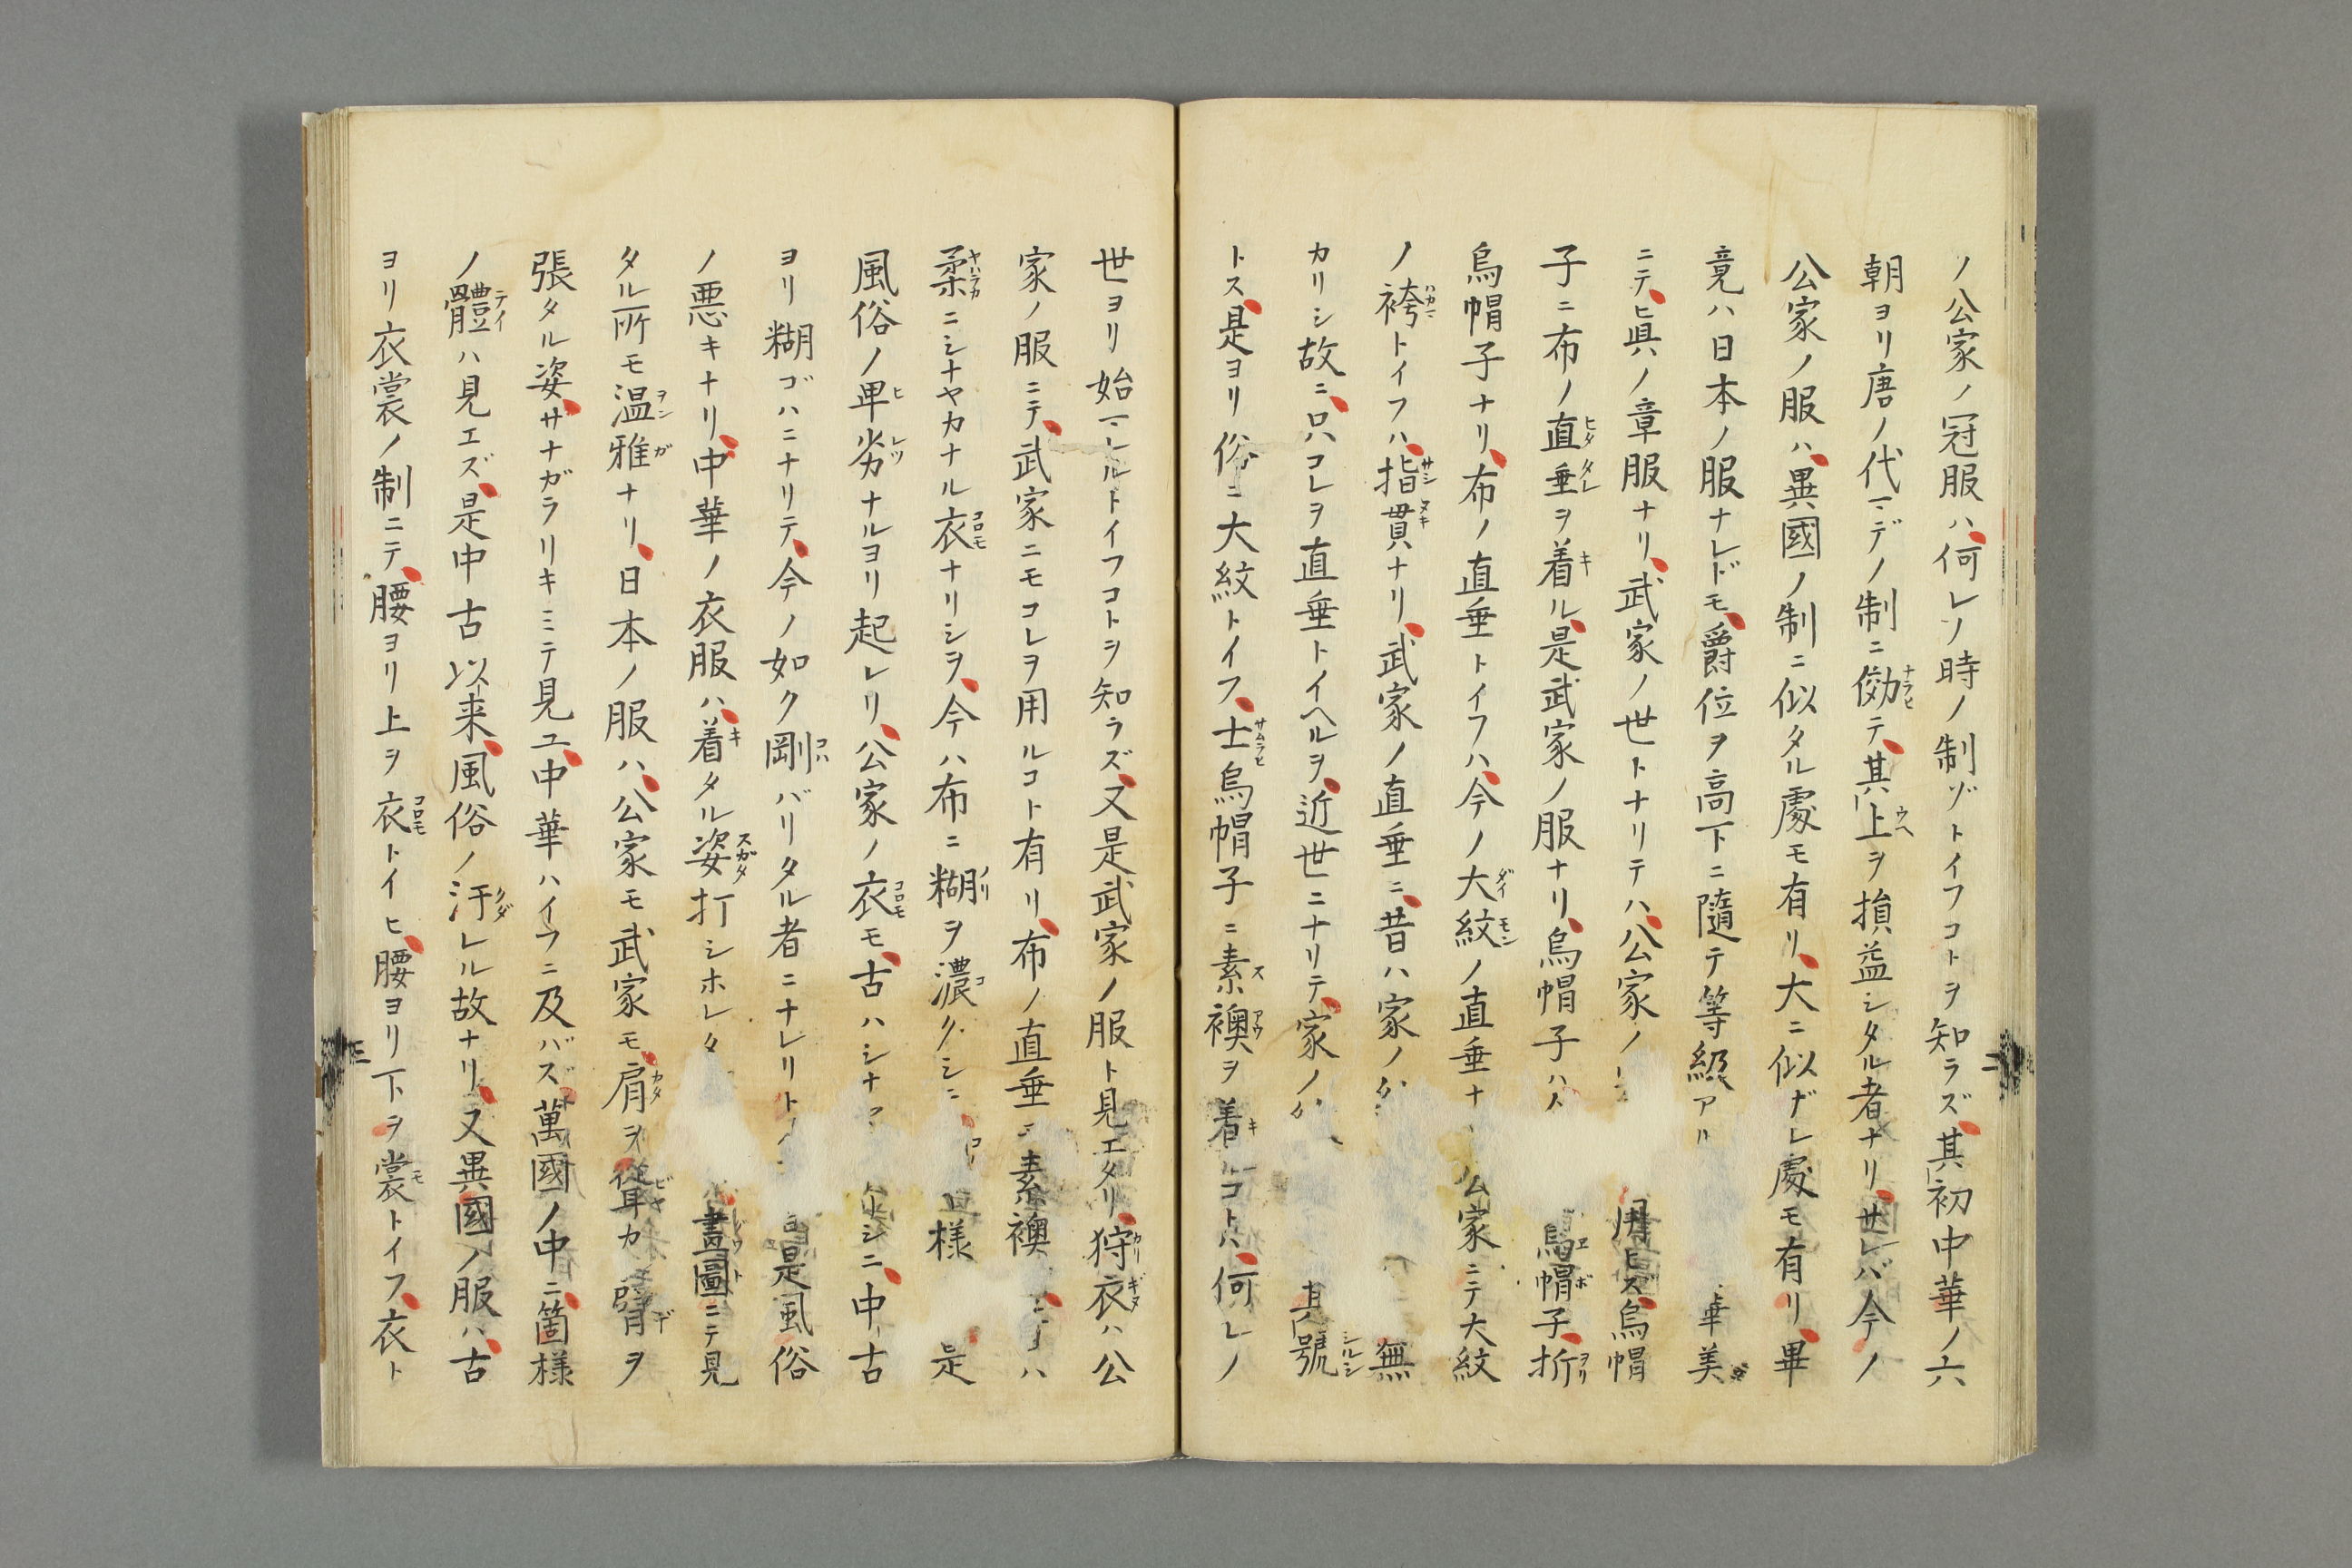 ノ公家ノ冠服ハ、何レノ時ノ制ゾトイフコトヲ知ラズ、其初中華ノ六
朝ヨリ唐ノ代マデノ制ニ傚テ、其上ヲ損益シタル者ナリ、サレバ今ノ
公家ノ服ハ、異國ノ制ニ似タル處モ有リ、大ニ似ザレ處モ有リ、畢
竟ハ日本ノ服ナレドモ、爵位ヲ高下ニ隨テ等級アル 華美
ニテ、眞ノ章服ナリ、武家ノ世トナリテハ、公家ノ 用ヒズ、烏帽
子ニ布ノ直垂ヲ着ル、是武家ノ服ナリ、烏帽子ハ 烏帽子、折
烏帽子ナリ、布ノ直垂トイフハ、今ノ大紋ノ直垂ナ 公家ニテ大紋
ノ袴トイフハ、指貫ナリ、武家ノ直垂ニ、昔ハ家ノ 無
カリシ故ニ、只コレヲ直垂トイヘルヲ、近世ニナリテ、家ノ 其號
トス、是ヨリ俗ニ大紋トイフ、士烏帽子ニ素襖ヲ着ルコトハ、何レノ
世ヨリ始マレルトイフコトヲ知ラズ、又是武家ノ服ト見エタリ、狩衣ハ公
家ノ服ニテ、武家ニモコレヲ用ルコト有リ、布ノ直垂 素襖 ハ
柔ニシナヤカナル衣ナリシヲ、今ハ布ニ糊ヲ濃クシ 様 是
風俗ノ卑劣ナルヨリ起レリ、公家ノ衣モ、古ハシナ シニ、中古
ヨリ糊ゴハニナリテ、今ノ如ク剛バリタル者ニナレリト 是風俗
ノ悪キナリ、中華ノ衣服ハ、着タル姿打シホレタ 畫圖ニテ見
タル所モ温雅ナリ、日本ノ服ハ、公家モ武家モ、肩ヲ聳カ 臂ヲ
張タル姿、サナガラリキミテ見ユ、中華ハイフニ及バズ、萬國ノ中ニ、箇様
ノ體ハ見エズ、是中古以来、風俗ノ汙レル故ナリ、又異國ノ服ハ、古
ヨリ衣裳ノ制ニテ、腰ヨリ上ヲ衣トイヒ、腰ヨリ下ヲ裳トイフ、衣ト